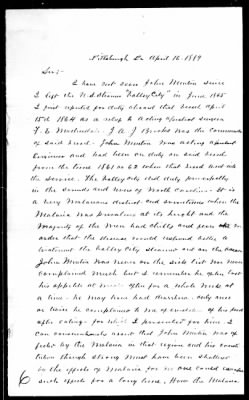 Pittsburgh Pa April 16 1889
Sir:-
I have not seen John Minton since
I left the U.S. Steamer "Valley City" in June 1865
I first reported for duty aboard that vessel April
15th 1864 as a relief to acting assistant surgeon
F. E. J. A. J Brooks was the commander
of said vessel - John Minton was acting assistant
Engineer and had been on duty on said vessel
from the time 1861 as I when that vessel went into
the service. The Valley City did duty principally
in the sounds and rivers of North Carolina - It is
a very Malarious district and sometimes when the
Malaria was prevalent at its height and the
Majority of the Men had chills and fever in
order that the disease would subside
the Valley City steamer out on the ocean
John Minton was never on the sick list nor
complained much but I remember he often lost
his appetite at meals often for a whole week at
a time - he may have had diarrhoea. only once
or twice he complained to me of of his food
after eating - for which I prescribed for him. I
can conscientiously assert that John Minton was
by the Malaria in that region and his constitution
though strong must have been
to the effects of Malaria for no one could
such effects for a long time. How the Malaria
6